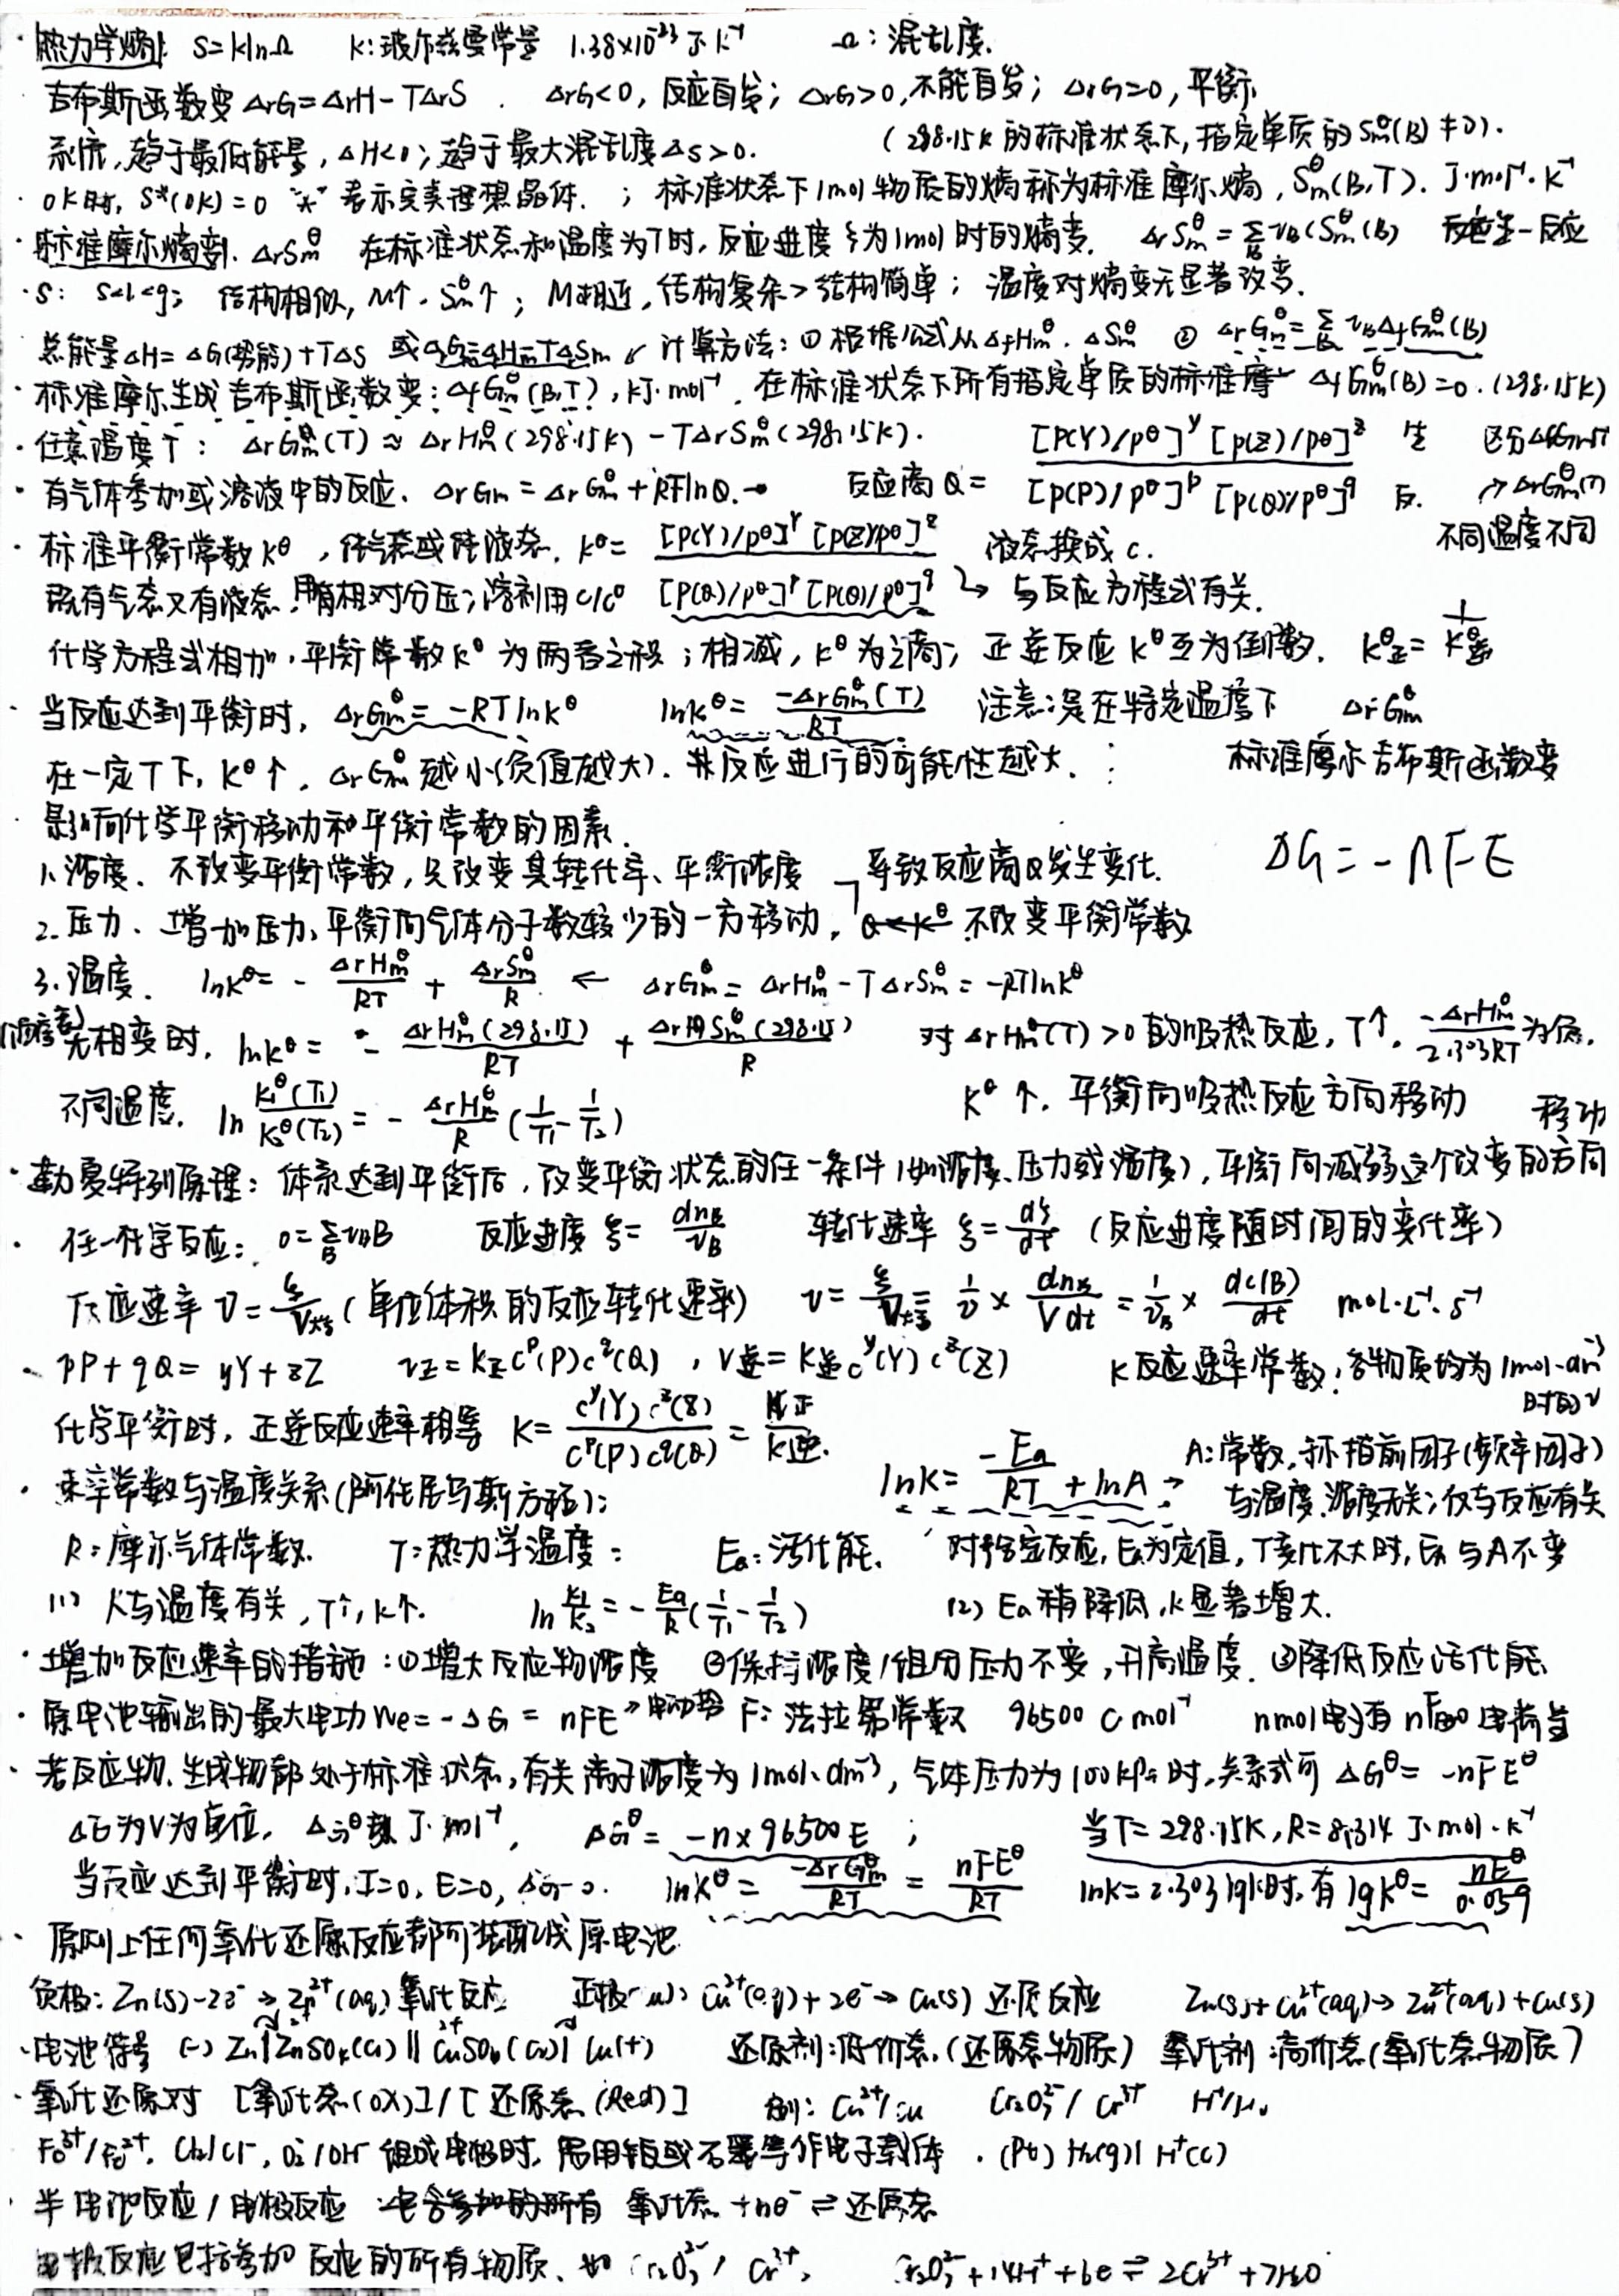 · 热力学熵: S=klnΩ K:玻尔兹曼常量 1.38×10⁻²³ J·K⁻¹ Ω:混乱度.
· 吉布斯函数变 ΔrG=ΔrH-TΔrS . ΔrG<0,反应自发; ΔrG>0,不能自发; ΔrG=0,平衡.
系统,趋于最低能量,ΔH<0;趋于最大混乱度ΔS>0. (298.15K的标准状态下,指定单质的Smθ(B)≠0).
· 0K时, S*(0K)=0 "*" 表示完美理想晶体. ; 标准状态下1mol物质的熵称为标准摩尔熵, Smθ(B,T). J·mol⁻¹·K⁻¹
· 标准摩尔熵变. ΔrSmθ 在标准状态和温度为T时,反应进度ξ为1mol时的熵变. ΔrSmθ=∑νB(Smθ(B)) 反应
· S: s<l<g; 结构相似, M↑. Smθ↑; M相近,结构复杂>结构简单; 温度对熵变无显著改变.
总能量ΔH=ΔG(势能)+TΔS 或 计算方法:① 根据公式从ΔfHmθ. ΔSmθ ② ΔrGmθ=∑νBΔfGmθ(B)
· 标准摩尔生成吉布斯函数变: ΔfGmθ(B,T), kJ·mol⁻¹. 在标准状态下所有指定单质的标准摩 ΔfGmθ(B)=0. (298.15K)
· 任意温度T: ΔrGmθ(T)≈ΔrHmθ(298.15K)-TΔrSmθ(298.15K). [P(Y)/pθ]ʸ [p(Z)/pθ]ᶻ 生 区分
· 有气体参加或溶液中的反应. ΔrGm=ΔrGmθ+RTlnQ. 反应商Q= [p(P)/pθ]ᵖ [p(Q)/pθ]^q 反. →ΔrGmθ(T)
不同温度不同
· 标准平衡常数Kθ ,Kθ= [P(Y)/pθ]ʸ [P(Z)/pθ]ᶻ 液态换成c.
既有气态又有液态,用相对分压;溶剂用c/cθ [P(Q)/pθ]ᵖ [P(Q)/pθ]^q → 与反应方程式有关.
化学方程式相加,平衡常数Kθ为两者之积;相减,Kθ为之商;正逆反应Kθ互为倒数. Kθ正=1/Kθ逆
· 当反应达到平衡时, ΔrGmθ=-RTlnKθ lnKθ=-ΔrGmθ(T)/RT 注意:是在特定温度下 ΔrGmθ
在一定T下, Kθ↑. ΔrGmθ越小(负值越大). 其反应进行的可能性越大. 标准摩尔吉布斯函数变
· 影响化学平衡移动和平衡常数的因素.
1.浓度. 不改变平衡常数,只改变其转化率、平衡浓度 导致反应商Q发生变化. ΔG=-nFE
2.压力. 增加压力,平衡向气体分子数较少的一方移动. 不改变平衡常数
3.温度. lnKθ=-ΔrHmθ/RT+ΔrSmθ/R ← ΔrGmθ=ΔrHmθ-TΔrSmθ=-RTlnKθ
无相变时. lnKθ=-ΔrHmθ(298.15)/RT+ΔrSmθ(298.15)/R 对ΔrHmθ(T)>0的吸热反应,T↑. -ΔrHmθ/2.303RT 为负.
不同温度. ln K₁θ(T₁)/K₂θ(T₂)=-ΔrHmθ/R(1/T₁-1/T₂) Kθ↑. 平衡向吸热反应方向移动 移动
· 勒夏特列原理:体系达到平衡后,改变平衡状态的任一条件(如浓度、压力或温度),平衡向减弱这个改变的方向
· 任一化学反应: 0=∑νBB 反应进度 ξ=dnB/νB 转化速率 ξ=dξ/dt (反应进度随时间的变化率)
反应速率 v=ξ/V (单位体积的反应转化速率) v=ξ/V=1/ν×dnB/Vdt=1/νB×dc(B)/dt mol·L⁻¹·s⁻¹
· pP+qQ=yY+zZ v正=k正cᵖ(P)c^q(Q) , v逆=k逆cʸ(Y)cᶻ(Z) K反应速率常数:各物质均为1mol·dm⁻³
时的v
化学平衡时,正逆反应速率相等 K=cʸ(Y)cᶻ(Z)/cᵖ(P)c^q(Q)=k正/k逆.
· 速率常数与温度关系(阿化尼乌斯方程): lnK=-Ea/RT+lnA → A:常数,称指前因子(频率因子)
与温度.浓度无关;仅与反应有关
R:摩尔气体常数. T:热力学温度: Ea:活化能. 对指定反应,Ea为定值,T变化不大时,Ea与A不变
(1) K与温度有关,T↑,K↑. ln k₁/k₂=-Ea/R(1/T₁-1/T₂) (2) Ea稍降低,k显著增大.
· 增加反应速率的措施:①增大反应物浓度 ②保持浓度/组分压力不变,升高温度. ③降低反应活化能
· 原电池输出的最大电功We=-ΔG=nFE→电动势 F:法拉第常数 96500 C mol⁻¹ nmol电子有
· 若反应物.生成物都处于标准状态,有关离子浓度为1mol·dm⁻³,气体压力为100kPa时,关系式可 ΔGθ=-nFEθ
ΔGθ=-n×96500E ; 当T=298.15K,R=8.314 J·mol·K⁻¹
当反应达到平衡时,I=0,E=0,ΔG=0. lnKθ=-ΔrGmθ/RT=nFEθ/RT lnK=2.303lgK时,有lgKθ=nEθ/0.059
· 原则上任何氧化还原反应都可装配成原电池
负极: Zn(s)-2e⁻→Zn²⁺(aq)氧化反应 正极: Cu²⁺(aq)+2e⁻→Cu(s) 还原反应 Zn(s)+Cu²⁺(aq)→Zn²⁺(aq)+Cu(s)
· 电池符号 (-) Zn|ZnSO₄(c₁)‖CuSO₄(c₂)|Cu(+) 还原剂:低价态.(还原态物质) 氧化剂:高价态(氧化态物质)
· 氧化还原对 [氧化态(OX)]/[还原态(Red)] 例: Cu²⁺/Cu Cr₂O₇²⁻/Cr³⁺ H⁺/H₂
Fe³⁺/Fe²⁺. Cl₂/Cl⁻, O₂/OH⁻组成电极时,常用铂或石墨等作电子载体. (Pt) H₂(g)|H⁺(c)
· 半电池反应/电极反应 氧化态+ne⁻⇌还原态
电极反应包括参加反应的所有物质、如Cr₂O₇²⁻/Cr³⁺, Cr₂O₇²⁻+14H⁺+6e⇌2Cr³⁺+7H₂O